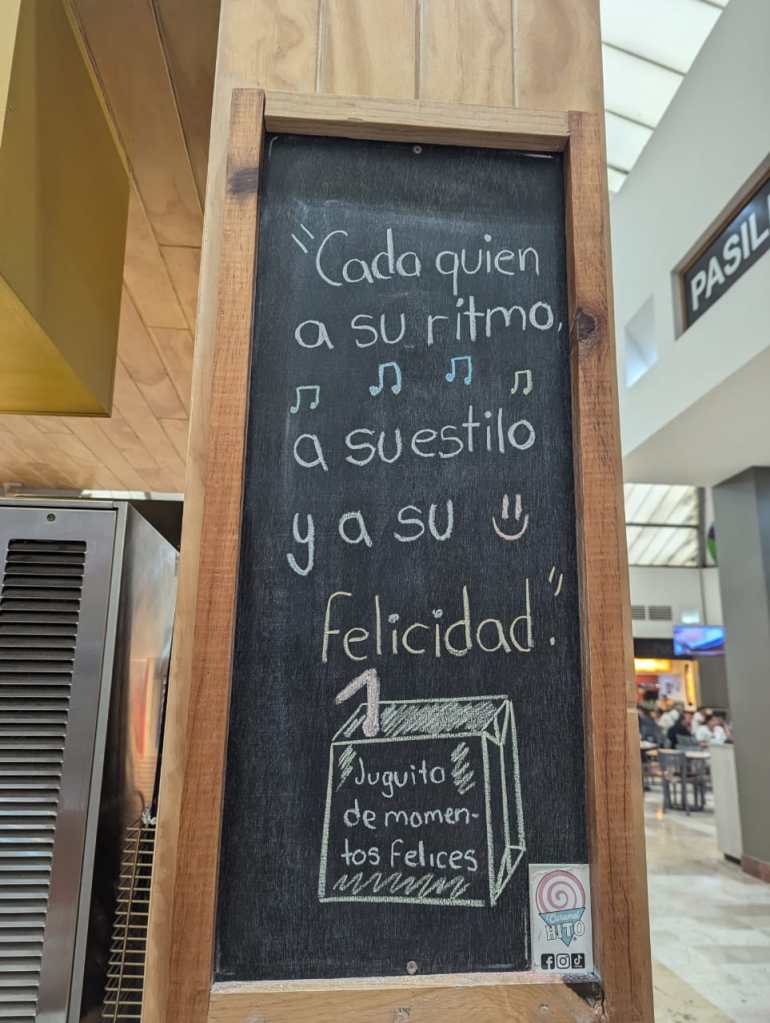 "Cada quien
a su ritmo,
a su estilo
y a su
felicidad."
Juguito
de momen-
tos felices
Caramel
HITO
PASIL